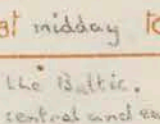 at midday
the Baltic.
central and